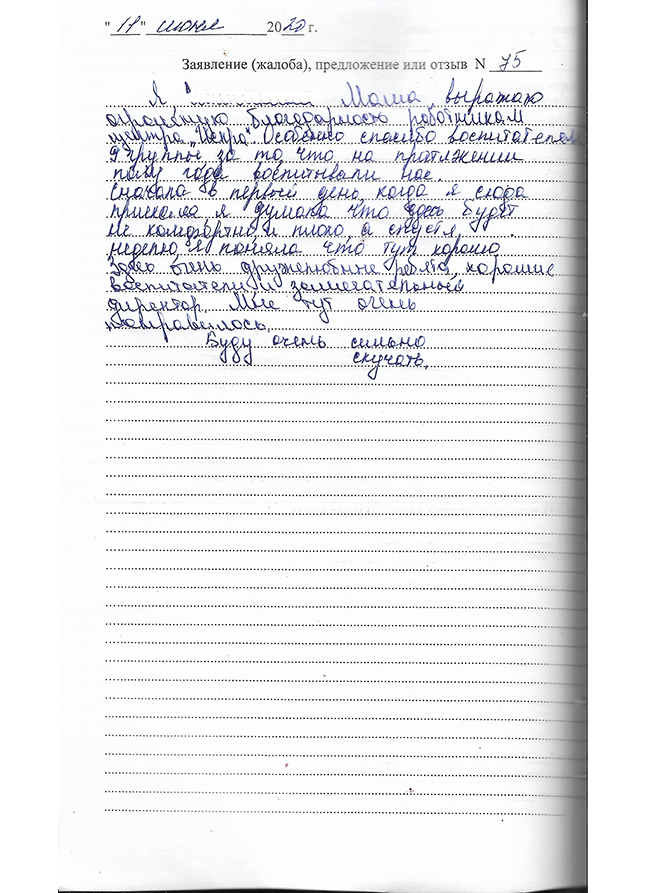 "17" июня 2020 г.
Заявление (жалоба), предложение или отзыв N 75
Я Маша выражаю
огромную благодарность работникам
центра "Искра". Особенно спасибо воспитателям
9 группы за то, что на протяжении
полу года воспитывали нас.
Сначала в первый день, когда я сюда
пришла, я думала что здесь будет
не комфортно и плохо, а спустя,
неделю я поняла что тут хорошо.
Здесь очень дружелюбные ребята, хорошие
воспитатели и замечательный
директор. Мне тут очень
понравилось.
Буду очень сильно
скучать.